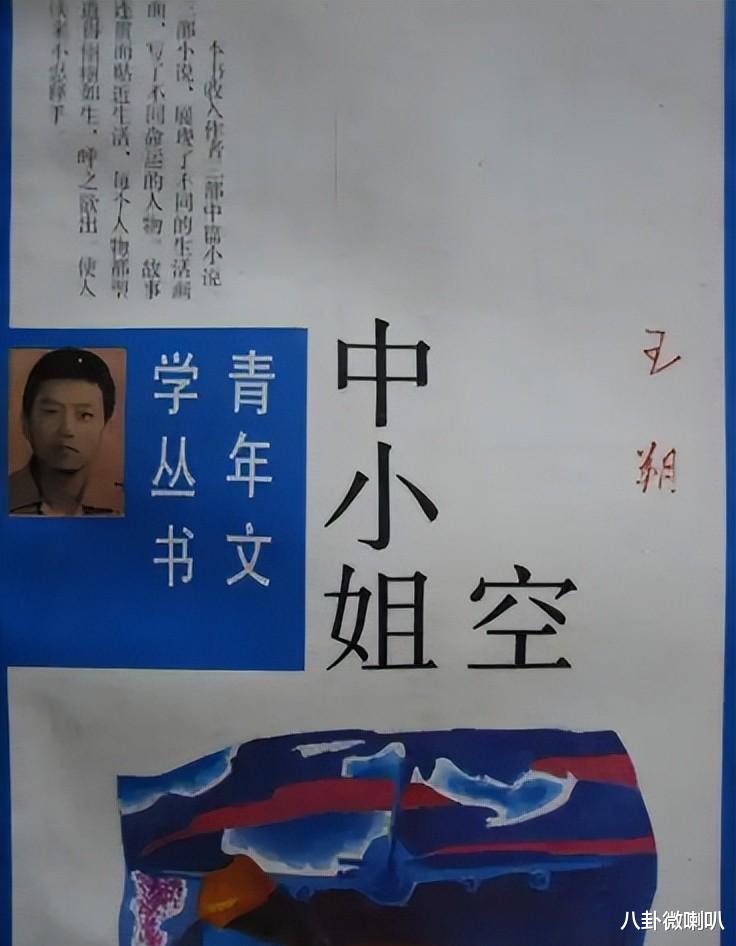 本书收入作者三部中篇小说。
三部小说，展现了不同的生活画
面，写了不同命运的人物。故事
连贯而贴近生活，每个人物都塑
造得栩栩如生，呼之欲出，使人
王朔
空
中小姐
青年文
学丛书
八卦微喇叭